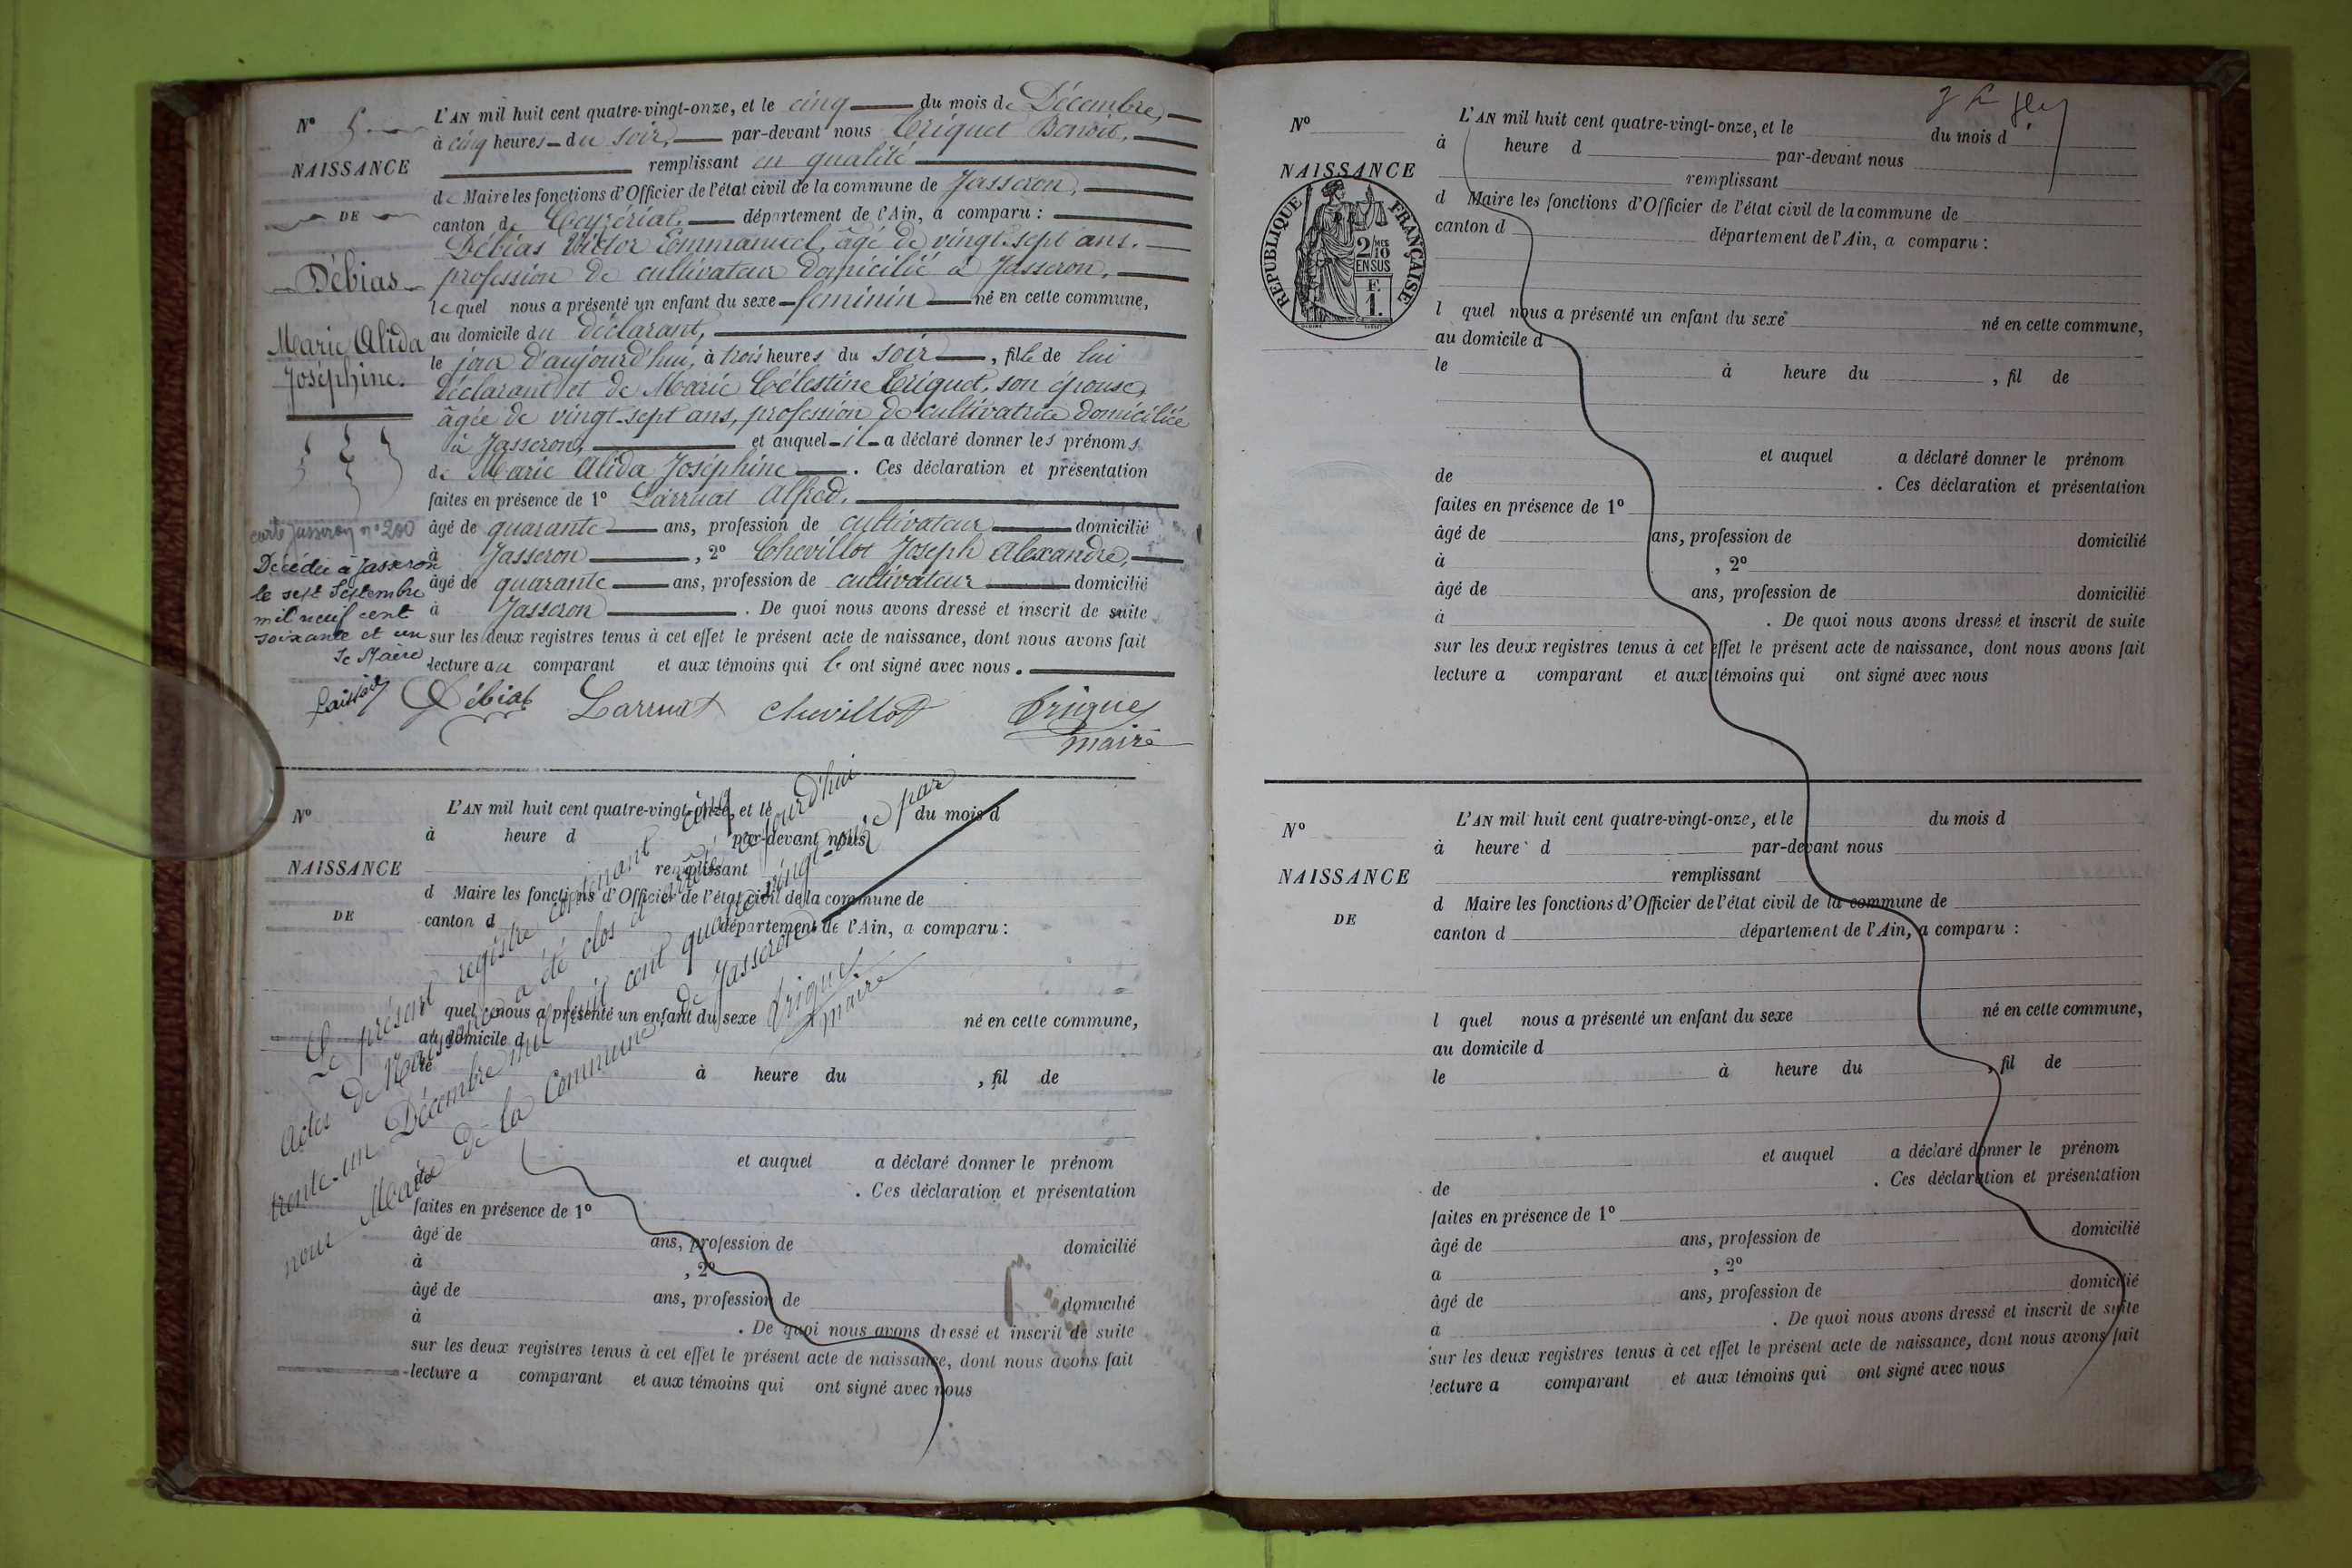 N° 5
NAISSANCE
DE
Débias
Marie Alida
Joséphine.
carte Jasseron n° 200
Décédée à Jasseron
le sept Septembre
mil neuf cent
soixante et un
Le Maire
L'AN mil huit cent quatre-vingt-onze, et le cinq du mois de Décembre,
à cinq heures du soir, par-devant nous Triquet Benoit,
remplissant en qualité
de Maire les fonctions d'Officier de l'état civil de la commune de Jasseron,
canton de Ceyzériat, département de l'Ain, a comparu :
Débias Victor Emmanuel, âgé de vingt-sept ans,
profession de cultivateur domicilié à Jasseron,
lequel nous a présenté un enfant du sexe féminin né en cette commune,
au domicile du déclarant,
le jour d'aujourd'hui, à trois heures du soir, fille de lui
déclarant et de Marie Célestine Triquet, son épouse,
âgée de vingt-sept ans, profession de cultivatrice domiciliée
à Jasseron, et auquel il a déclaré donner les prénoms
de Marie Alida Joséphine. Ces déclaration et présentation
faites en présence de 1° Larruat Alfred,
âgé de quarante ans, profession de cultivateur domicilié
à Jasseron, 2° Chevillot Joseph Alexandre,
âgé de quarante ans, profession de cultivateur domicilié
à Jasseron. De quoi nous avons dressé et inscrit de suite
sur les deux registres tenus à cet effet le présent acte de naissance, dont nous avons fait
lecture au comparant et aux témoins qui l'ont signé avec nous.
Débias Larruat Chevillot Triquet
maire
N°
NAISSANCE
DE
L'AN mil huit cent quatre-vingt-onze, et le du mois d
à heure d par-devant nous
remplissant
d Maire les fonctions d'Officier de l'état civil de la commune de
canton d département de l'Ain, a comparu :
quel nous a présenté un enfant du sexe né en cette commune,
au domicile d
le à heure du , fil de
et auquel a déclaré donner le prénom
de . Ces déclaration et présentation
faites en présence de 1°
âgé de ans, profession de domicilié
à , 2°
âgé de ans, profession de domicilié
à . De quoi nous avons dressé et inscrit de suite
sur les deux registres tenus à cet effet le présent acte de naissance, dont nous avons fait
lecture a comparant et aux témoins qui ont signé avec nous
Le présent registre contenant cinq
actes de Naissance a été clos et arrêté aujourd'hui
trente-un Décembre mil huit cent quatre vingt-onze par
nous Maire de la Commune de Jasseron
Triquet
maire
N°
NAISSANCE
RÉPUBLIQUE FRANÇAISE
2/10 MES
EN SUS
F.
1.
L'AN mil huit cent quatre-vingt-onze, et le du mois d
à heure d par-devant nous
remplissant
d Maire les fonctions d'Officier de l'état civil de la commune de
canton d département de l'Ain, a comparu :
l quel nous a présenté un enfant du sexe né en cette commune,
au domicile d
le à heure du , fil de
et auquel a déclaré donner le prénom
de . Ces déclaration et présentation
faites en présence de 1°
âgé de ans, profession de domicilié
à , 2°
âgé de ans, profession de domicilié
à . De quoi nous avons dressé et inscrit de suite
sur les deux registres tenus à cet effet le présent acte de naissance, dont nous avons fait
lecture a comparant et aux témoins qui ont signé avec nous
N°
NAISSANCE
DE
L'AN mil huit cent quatre-vingt-onze, et le du mois d
à heure d par-devant nous
remplissant
d Maire les fonctions d'Officier de l'état civil de la commune de
canton d département de l'Ain, a comparu :
l quel nous a présenté un enfant du sexe né en cette commune,
au domicile d
le à heure du , fil de
et auquel a déclaré donner le prénom
de . Ces déclaration et présentation
faites en présence de 1°
âgé de ans, profession de domicilié
a , 2°
âgé de ans, profession de domicilié
a . De quoi nous avons dressé et inscrit de suite
sur les deux registres tenus à cet effet le présent acte de naissance, dont nous avons fait
lecture a comparant et aux témoins qui ont signé avec nous